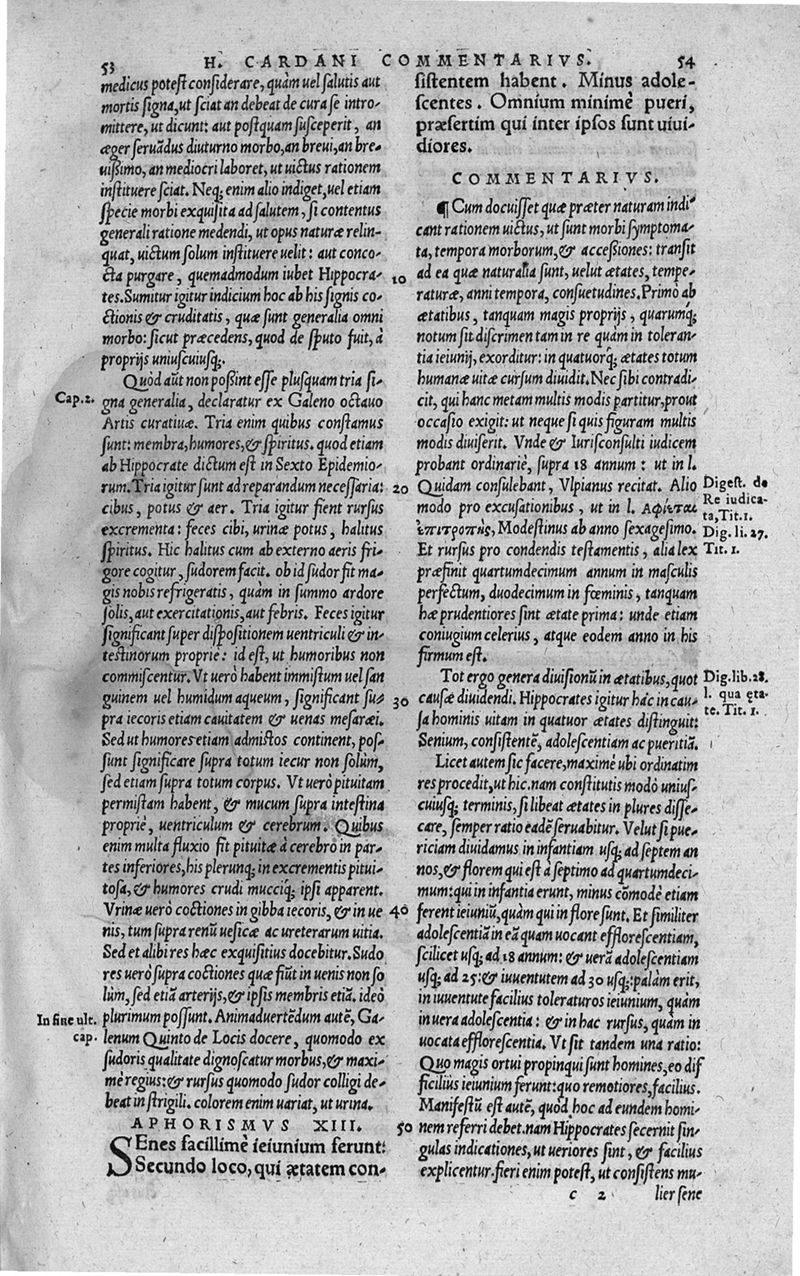 53 H. CARDANI COMMENTARIVS. 54
medicus potest considerare, quàm uel salutis aut
mortis signa, ut sciat an debeat de cura se intro-
mittere, ut dicunt: aut postquam susceperit, an
æger seruãdus diuturno morbo, an breui, an bre-
uißimo, an mediocri laboret, ut uictus rationem
instituere sciat. Neq; enim alio indiget, uel etiam
specie morbi exquisita ad salutem, si contentus
generali ratione medendi, ut opus naturæ relin-
quat, uictum solum instituere uelit: aut conco-
cta purgare, quemadmodum iubet Hippocra-
tes. Sumitur igitur indicium hoc ab his signis co-
ctionis & cruditatis, quæ sunt generalia omni
morbo: sicut præcedens, quod de sputo fuit, à
proprijs uniuscuiusq;.
Quòd aũt non poßint esse plusquam tria si-
Cap. 2. gna generalia, declaratur ex Galeno octauo
Artis curatiuæ. Tria enim quibus constamus
sunt: membra, humores, & spiritus. quod etiam
ab Hippocrate dictum est in Sexto Epidemio-
rum. Tria igitur sunt ad reparandum necessaria:
cibus, potus & aer. Tria igitur fient rursus
excrementa: feces cibi, urinæ potus, halitus
spiritus. Hic halitus cum ab externo aeris fri-
gore cogitur, sudorem facit. ob id sudor fit ma-
gis nobis refrigeratis, quàm in summo ardore
solis, aut exercitationis, aut febris. Feces igitur
significant super dispositionem uentriculi & in-
testinorum proprie: id est, ut humoribus non
commiscentur. Vt uerò habent immistum uel san
guinem uel humidum aqueum, significant su-
pra iecoris etiam cauitatem & uenas mesaræi.
Sed ut humores etiam admistos continent, pos-
sunt significare supra totum iecur non solùm,
sed etiam supra totum corpus. Vt uerò pituitam
permistam habent, & mucum supra intestina
propriè, uentriculum & cerebrum. Quibus
enim multa fluxio fit pituitæ à cerebro in par-
tes inferiores, his plerunq; in excrementis pitui-
tosa, & humores crudi mucciq; ipsi apparent.
Vrinæ uerò coctiones in gibba iecoris, & in ue
nis, tum supra renũ uesicæ ac ureterarum uitia.
Sed et alibi res hæc exquisitius docebitur. Sudo
res uerò supra coctiones quæ fiũt in uenis non so
lùm, sed etiã arterijs, & ipsis membris etiã. ideò
In fine ult. plurimum possunt. Animaduertẽdum autẽ, Ga-
cap. lenum Quinto de Locis docere, quomodo ex
sudoris qualitate dignoscatur morbus, & maxi-
mè regius: & rursus quomodo sudor colligi de-
beat in strigili. colorem enim uariat, ut urina.
APHORISMVS XIII.
SEnes facillimè ieiunium ferunt:
Secundo loco, qui ætatem con-
sistentem habent. Minus adole-
scentes. Omnium minimè pueri,
præsertim qui inter ipsos sunt uiui-
diores.
COMMENTARIVS.
¶ Cum docuisset quæ præter naturam indi-
cant rationem uictus, ut sunt morbi symptoma-
ta, tempora morborum, & acceßiones: transit
10 ad ea quæ naturalia sunt, uelut ætates, tempe-
raturæ, anni tempora, consuetudines. Primò ab
ætatibus, tanquam magis proprijs, quarumq;
notum sit discrimen tam in re quàm in toleran-
tia ieiunij, exorditur: in quatuorq; ætates totum
humanæ uitæ cursum diuidit. Nec sibi contradi-
cit, qui hanc metam multis modis partitur, prout
occasio exigit: ut neque si quis figuram multis
modis diuiserit. Vnde & Iurisconsulti iudicem
probant ordinariè, supra 18 annum: ut in l.
20 Quidam consulebant, Vlpianus recitat. Alio Digest. de
modo pro excusationibus, ut in l. Ἀφίεται Re iudica-
ta, Tit. 1.
ἐπιτροπῆς, Modestinus ab anno sexagesimo. Dig. li. 27.
Et rursus pro condendis testamentis, alia lex Tit. 1.
præfinit quartumdecimum annum in masculis
perfectum, duodecimum in fœminis, tanquam
hæ prudentiores sint ætate prima: unde etiam
coniugium celerius, atque eodem anno in his
firmum est.
Tot ergo genera diuisionũ in ætatibus, quot Dig. lib. 28.
30 causæ diuidendi. Hippocrates igitur hac in cau- l. qua ęta-
sa hominis uitam in quatuor ætates distinguit: te. Tit. 1.
Senium, consistentẽ, adolescentiam ac pueritiã.
Licet autem sic facere, maximè ubi ordinatim
res procedit, ut hic. nam constitutis modò unius-
cuiusq; terminis, si libeat ætates in plures disse-
care, semper ratio eadẽ seruabitur. Velut si pue-
riciam diuidamus in infantiam usq; ad septem an
nos, & florem qui est à septimo ad quartumdeci-
mum: qui in infantia erunt, minus cõmodè etiam
40 ferent ieiuniũ, quàm qui in flore sunt. Et similiter
adolescentiã in eã quam uocant efflorescentiam,
scilicet usq; ad 18 annum: & uerã adolescentiam
usq; ad 25: & iuuentutem ad 30 usq;: palàm erit,
in iuuentute facilius toleraturos ieiunium, quàm
in uera adolescentia: & in hac rursus, quàm in
uocata efflorescentia. Vt sit tandem una ratio:
Quo magis ortui propinqui sunt homines, eo dif
ficilius ieiunium ferunt: quo remotiores, facilius.
Manifestũ est autẽ, quòd hoc ad eundem homi-
50 nem referri debet. nam Hippocrates secernit sin-
gulas indicationes, ut ueriores sint, & facilius
explicentur. fieri enim potest, ut consistens mu-
c 2 lier sene